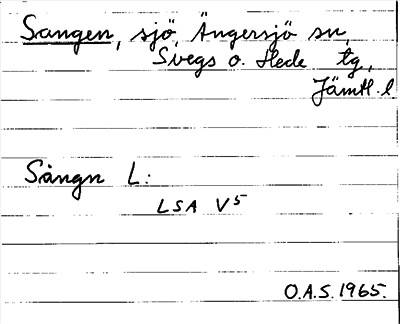 Sangen, sjö, Ängersjö sn,
Svegs o. Hede tg,
Jämtl. l
Sångn L:
LSA V5
O.A.S. 1965.